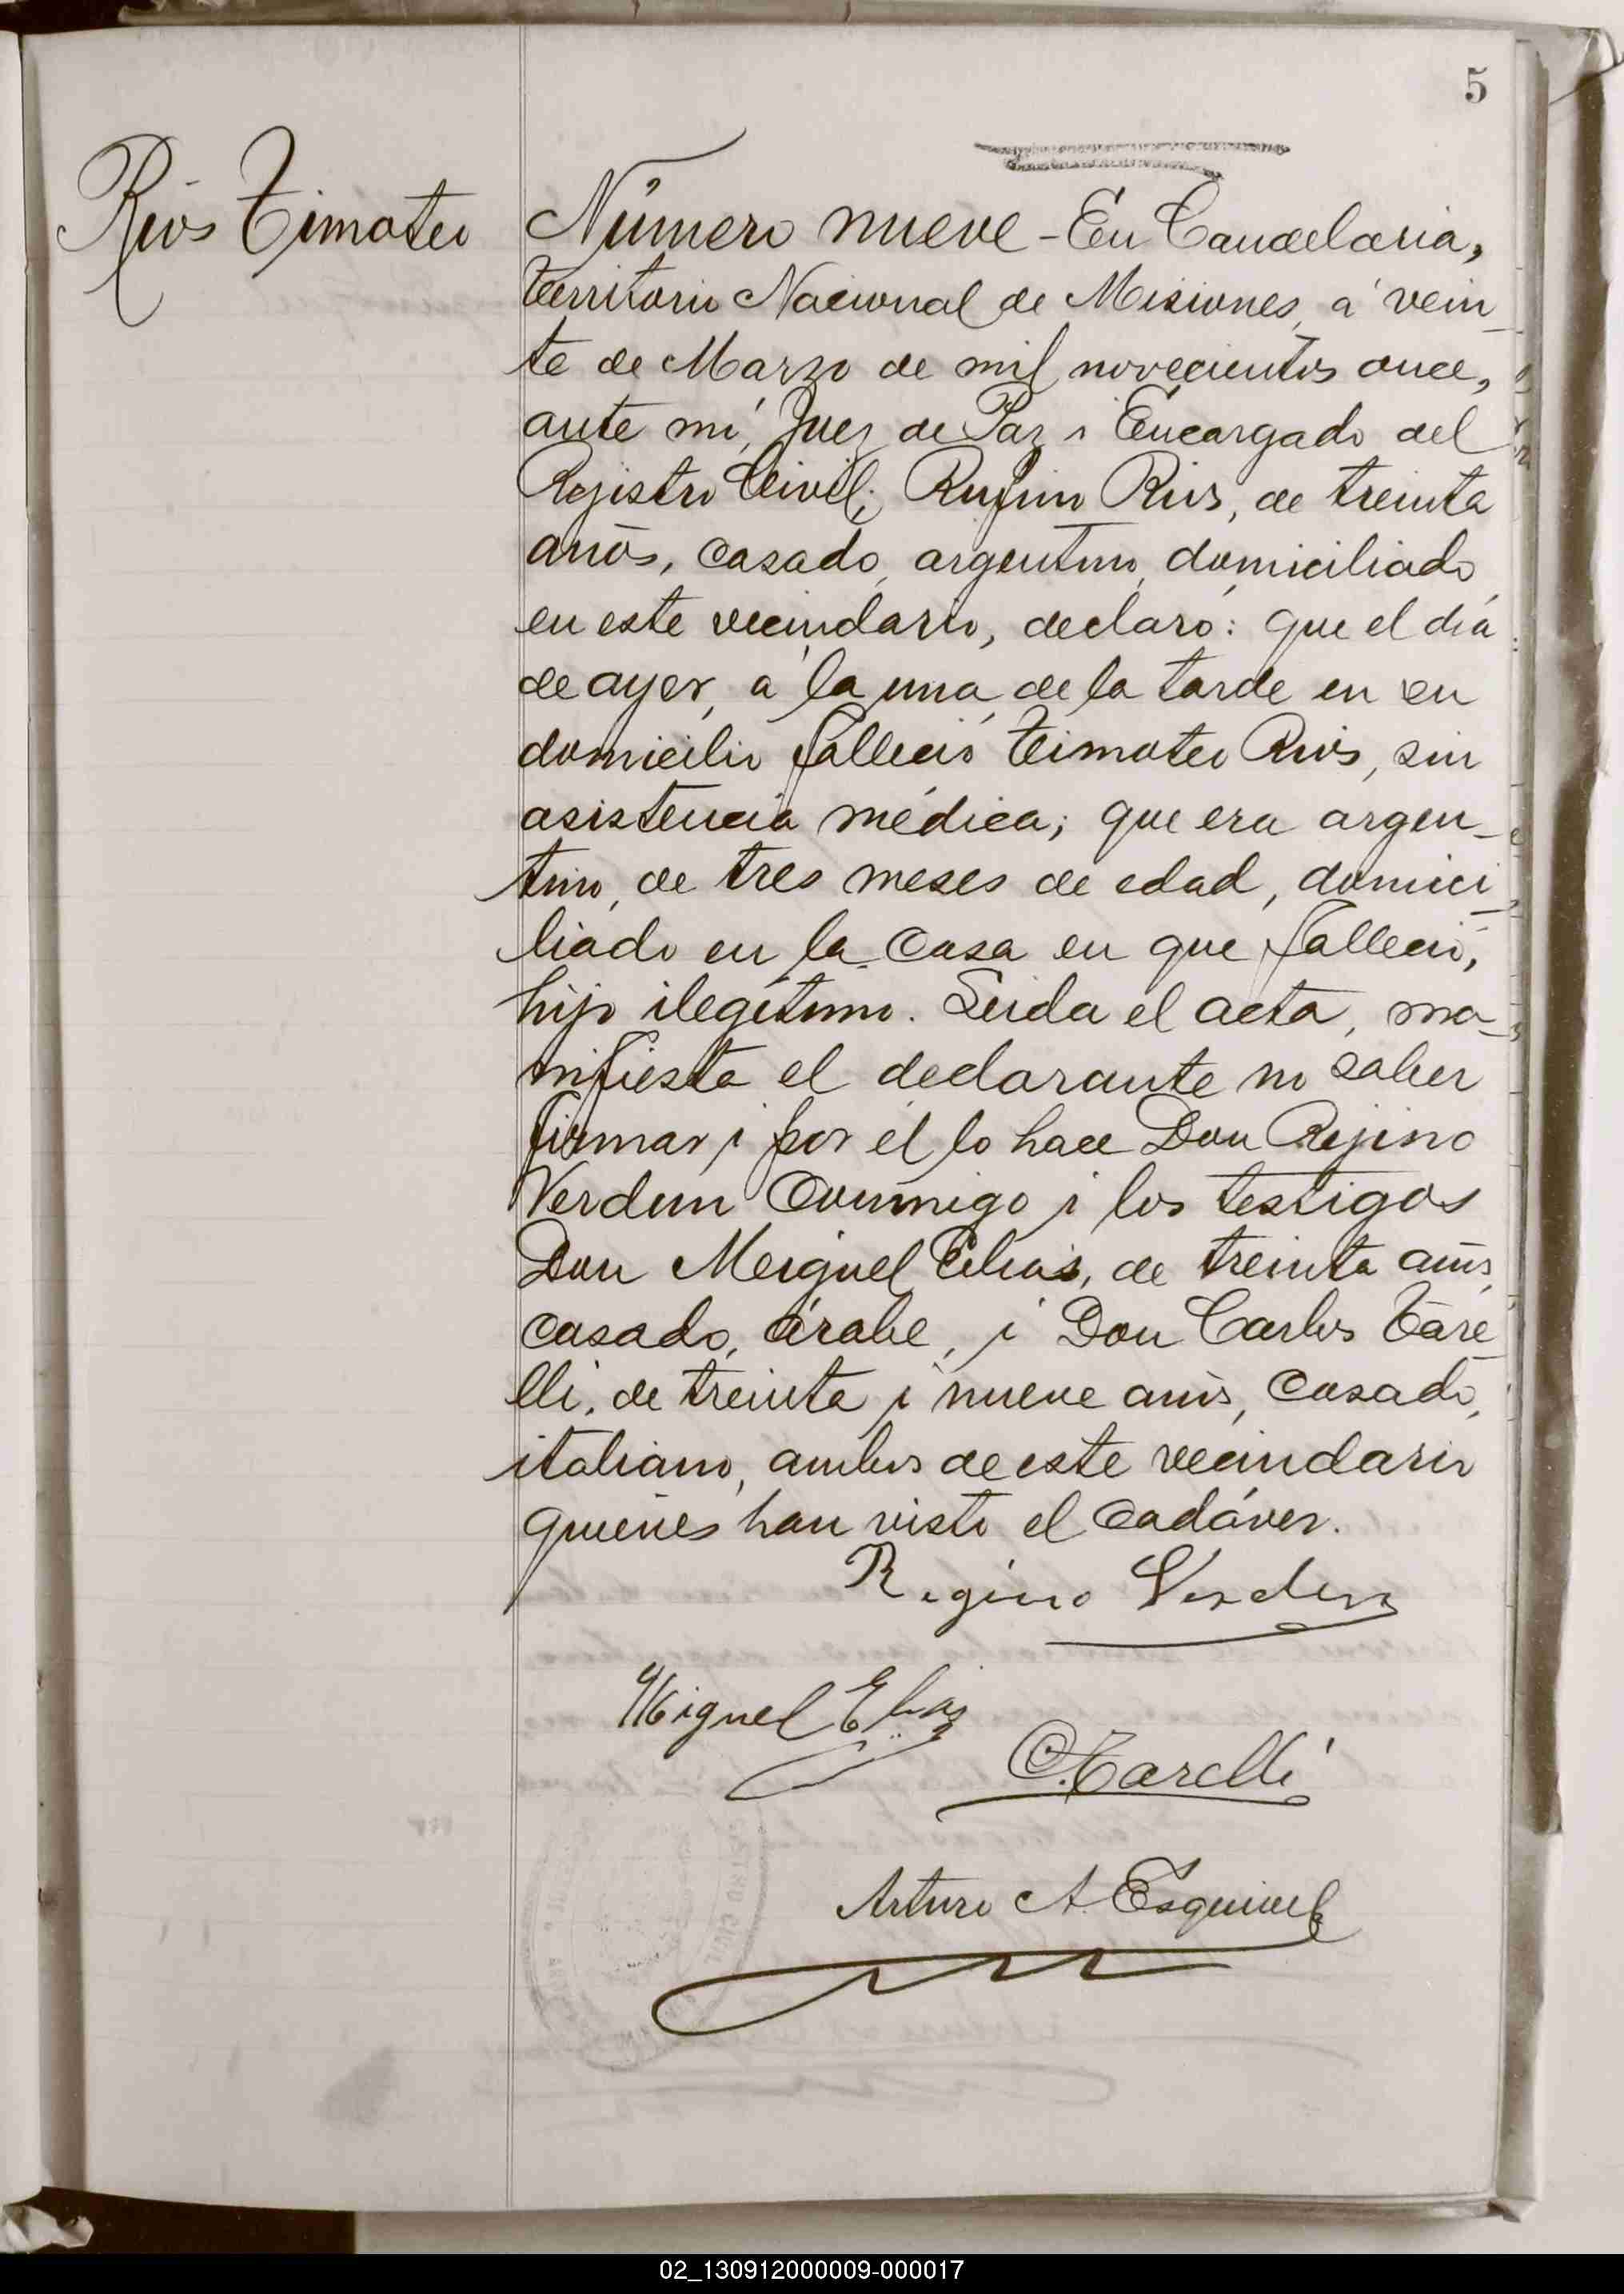 5
Rios Timoteo
Número nueve - En Candelaria,
Territorio Nacional de Misiones, á vein-
te de Marzo de mil novecientos once,
ante mí, Juez de Paz i Encargado del
Registro Civil; Rufino Rios, de treinta
años, casado, argentino, domiciliado
en este vecindario, declaró: que el día
de ayer, á la una de la tarde en su
domicilio falleció Timoteo Rios, sin
asistencia médica; que era argen-
tino, de tres meses de edad, domici-
liado en la casa en que falleció,
hijo ilegítimo. Leida el acta, ma-
nifiesta el declarante no saber
firmar i por él lo hace Don Rejino
Verdun conmigo i los testigos
Don Meiguel Elias, de treinta años,
casado, árabe, i Don Carlos Tare-
lli, de treinta i nueve años, casado,
italiano, ambos de este vecindario
quienes han visto el cadáver.
Regino Verdun
Miguel Elias
C. Tarelli
Arturo A. Esquivel
02_130912000009-000017